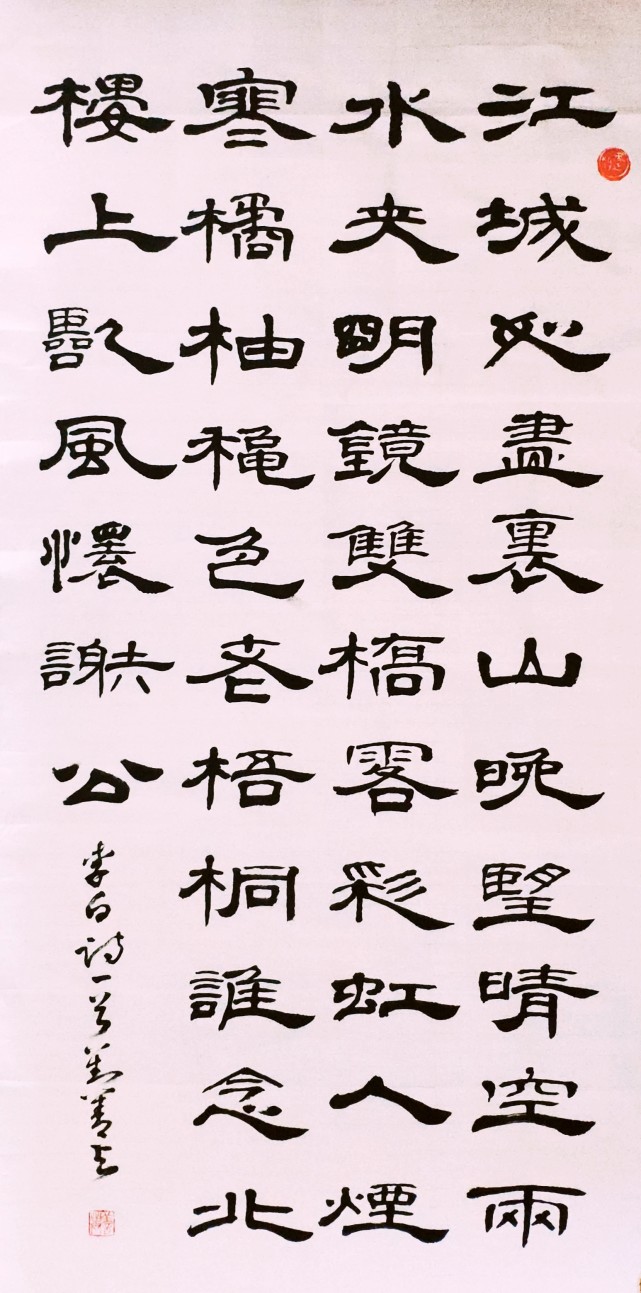 江城如畫裏山晚望晴空兩
水夾明鏡雙橋落彩虹人煙
寒橘柚穐色老梧桐誰念北
樓上臨風懷謝公
李白詩一首